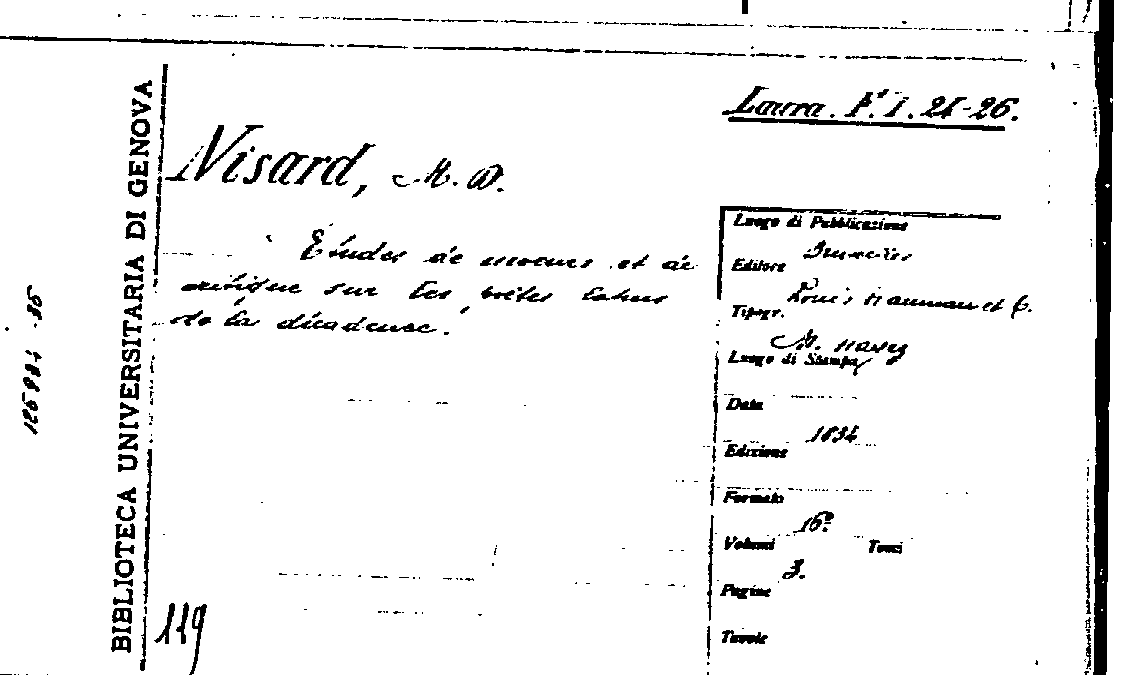 Laura. F. I. 21-26.
Nisard, M. D.
Études de moeurs et de
critique sur les poètes latins
de la décadence.
Luogo di Pubblicazione
Bruxelles
Editore
Louis Hauman et C.
Tipogr.
M. Hayez
Luogo di Stampa
Data
1834
Edizione
Formato
16º
Volumi Tomi
3.
Pagine
Tavole
BIBLIOTECA UNIVERSITARIA DI GENOVA
119